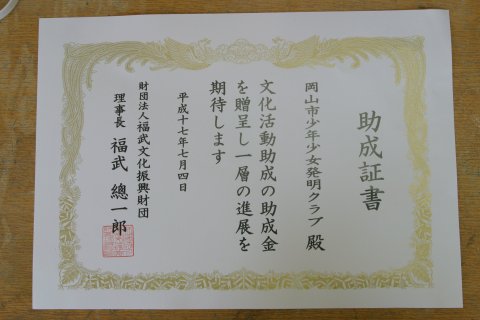 助成証書
岡山市少年少女発明クラブ 殿
文化活動助成の助成金
を贈呈し一層の進展を
期待します
平成十七年七月四日
財団法人福武文化振興財団
理事長 福武 總一郎